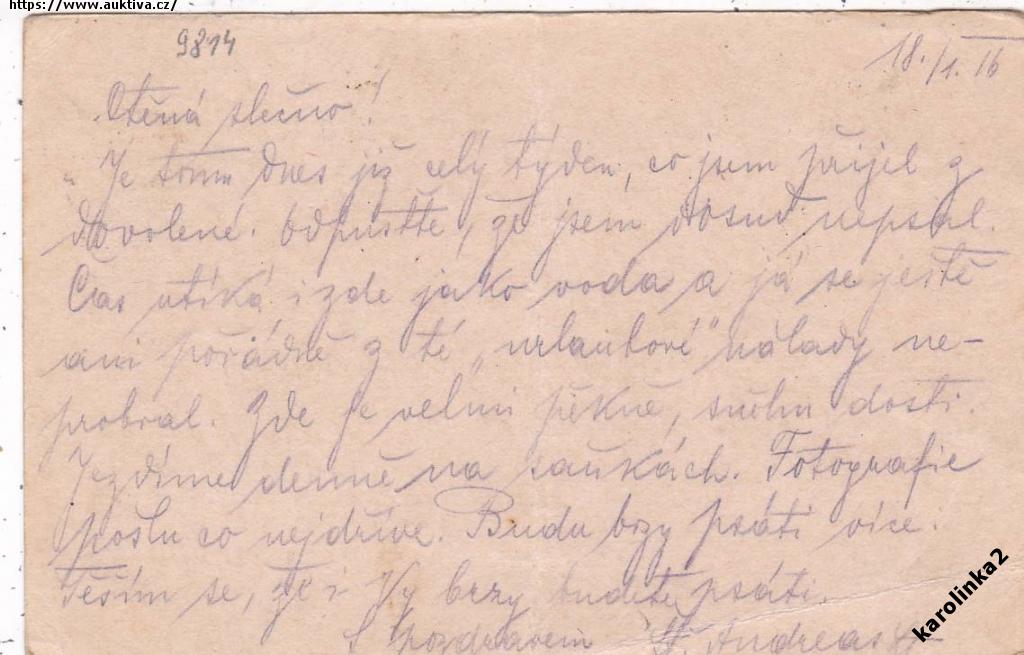 https://www.auktiva.cz/
9814
18./1. 16
Ctěná slečno!
Je tomu dnes již celý týden, co jsem přijel z
dovolené. Odpusťte, že jsem dosud nepsal.
Čas utíká i zde jako voda a já se ještě
ani pořádně z té „urlaubové" nálady ne-
probral. Zde je velmi pěkně, sněhu dosti.
Jezdíme denně na saňkách. Fotografie
pošlu co nejdříve. Budu brzy psáti více.
Těším se, že i Vy brzy budete psáti.
S pozdravem Andreas
karolinka2